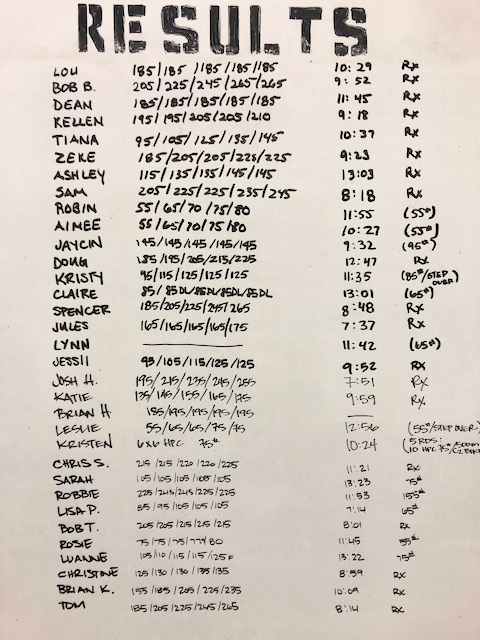 RESULTS
LOU 185/185/185/185/185 10:29 Rx
BOB B. 205/225/245/265/265 9:52 Rx
DEAN 185/185/185/185/185 11:45 Rx
KELLEN 195/195/205/205/210 9:18 Rx
TIANA 95/105/125/135/145 10:37 Rx
ZEKE 185/205/205/225/225 9:23 Rx
ASHLEY 115/135/135/145/145 13:03 Rx
SAM 205/225/225/235/245 8:18 Rx
ROBIN 55/65/70/75/80 11:55 (55#)
AIMEE 55/65/70/75/80 10:27 (55#)
JAYCIN 145/145/145/145/145 9:32 (95#)
DOUG 185/195/205/215/225 12:47 Rx
KRISTY 95/115/125/125/125 11:35 (85#/STEP OVER)
CLAIRE 85/85DL/85DL/85DL/85DL 13:01 (65#)
SPENCER 185/205/225/245/265 8:48 Rx
JULES 165/165/165/165/175 7:37 Rx
LYNN 11:42 (65#)
JESS II 95/105/115/125/125 9:52 Rx
JOSH H. 195/215/235/245/255 7:51 Rx
KATIE 135/145/155/165/175 9:59 Rx
BRIAN H 185/195/195/195/195
LESLIE 55/65/65/75/75 12:56 (55#/STEP OVER)
KRISTEN 6x6 HPC 75# 10:24 (5 RDS: 10 HPC 75/
CHRIS S. 215/215/220/220/225 11:21 Rx
SARAH 105/105/105/105/105 13:23 75#
ROBBIE 225/245/245/225/225 11:53 155#
LISA P. 85/95/105/105/105 7:14 65#
BOB T. 205/205/215/215/215 8:01 Rx
ROSIE 75/75/75/77/80 11:45 55#
LUANNE 105/110/115/115/125 13:22 75#
CHRISTINE 125/130/130/135/135 8:59 Rx
BRIAN K. 155/185/205/225/235 10:09 Rx
TOM 185/205/225/245/265 8:14 Rx